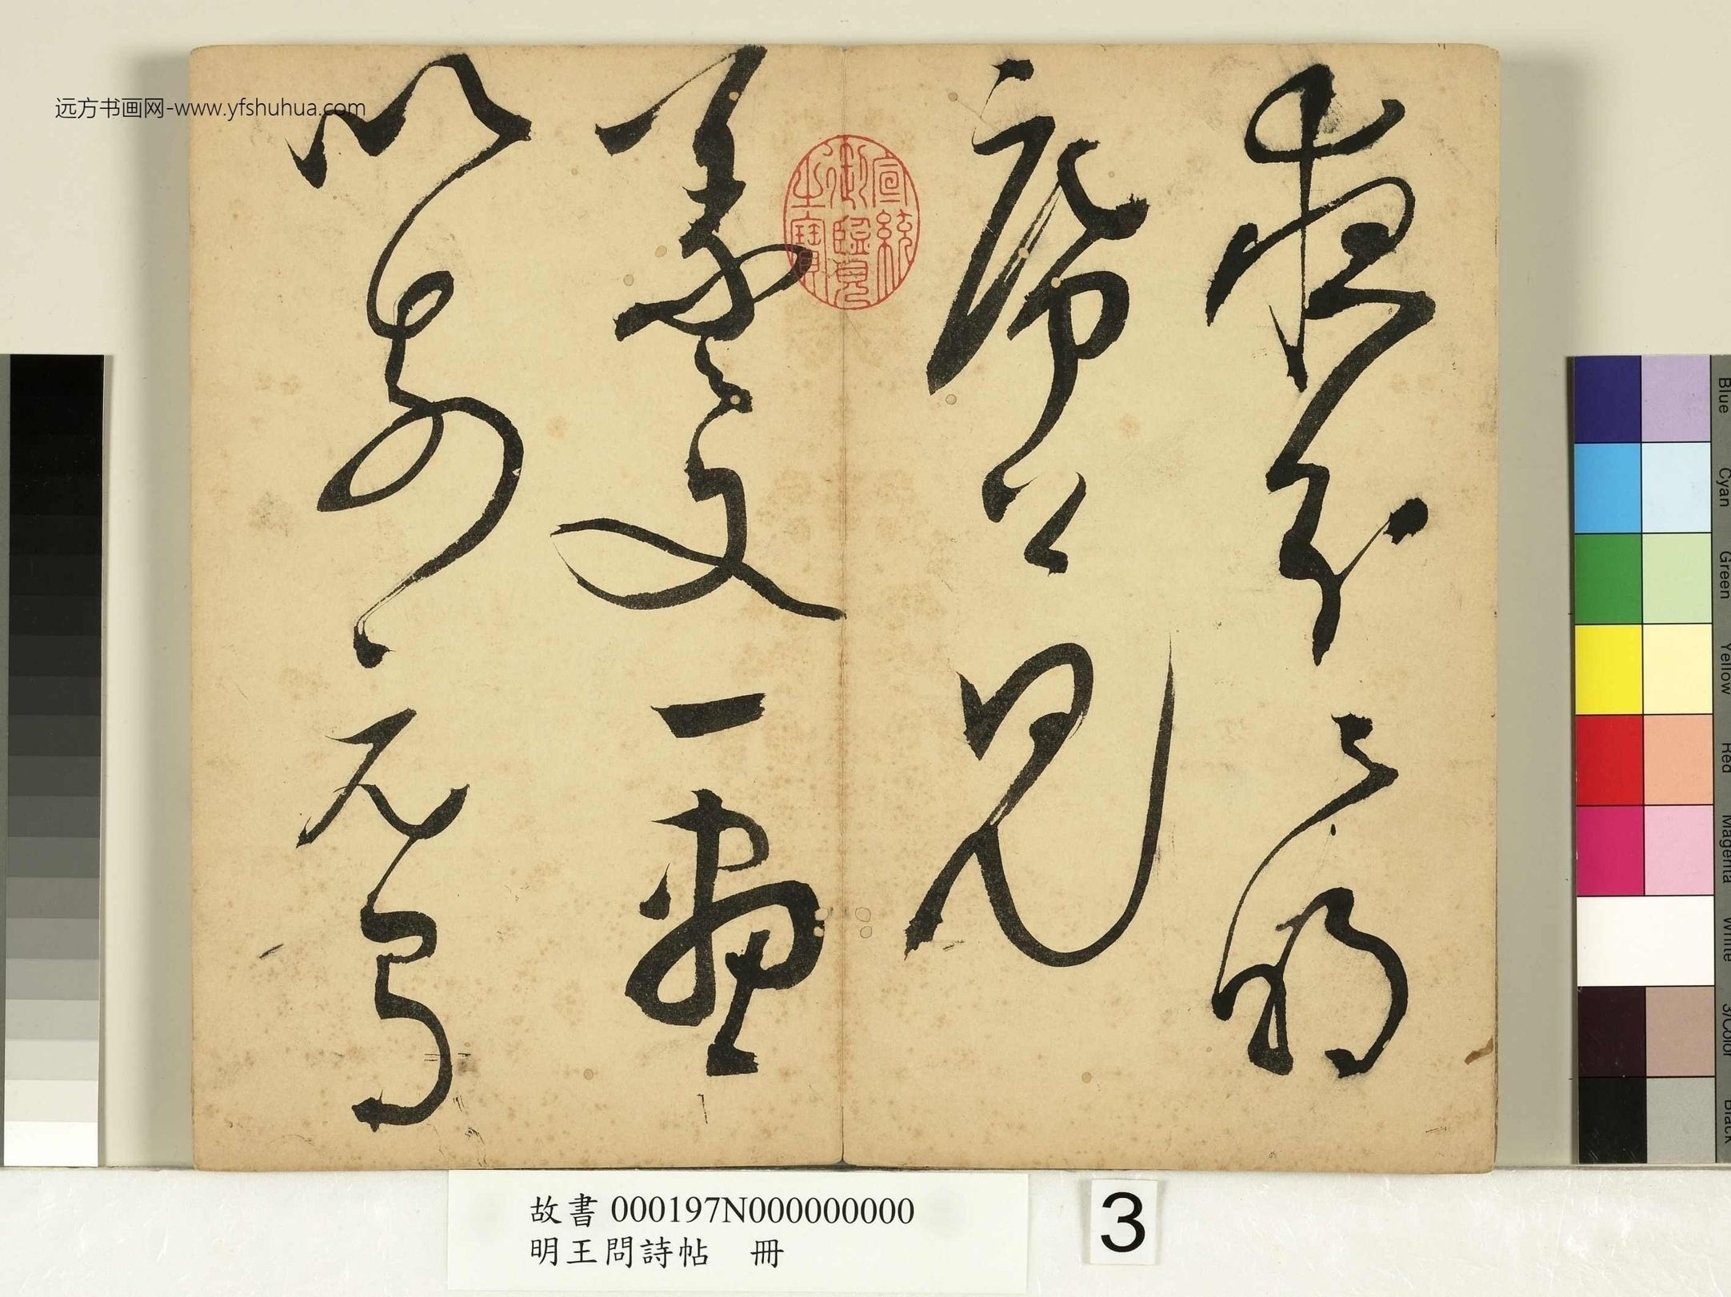 远方书画网-www.yfshuhua.com
夜分〻明
見
一畫
以前元
宣統
御覽
之寶
故書 000197N000000000
明王問詩帖 冊
3
Blue
Cyan
Green
Yellow
Red
Magenta
White
3/Color
Black